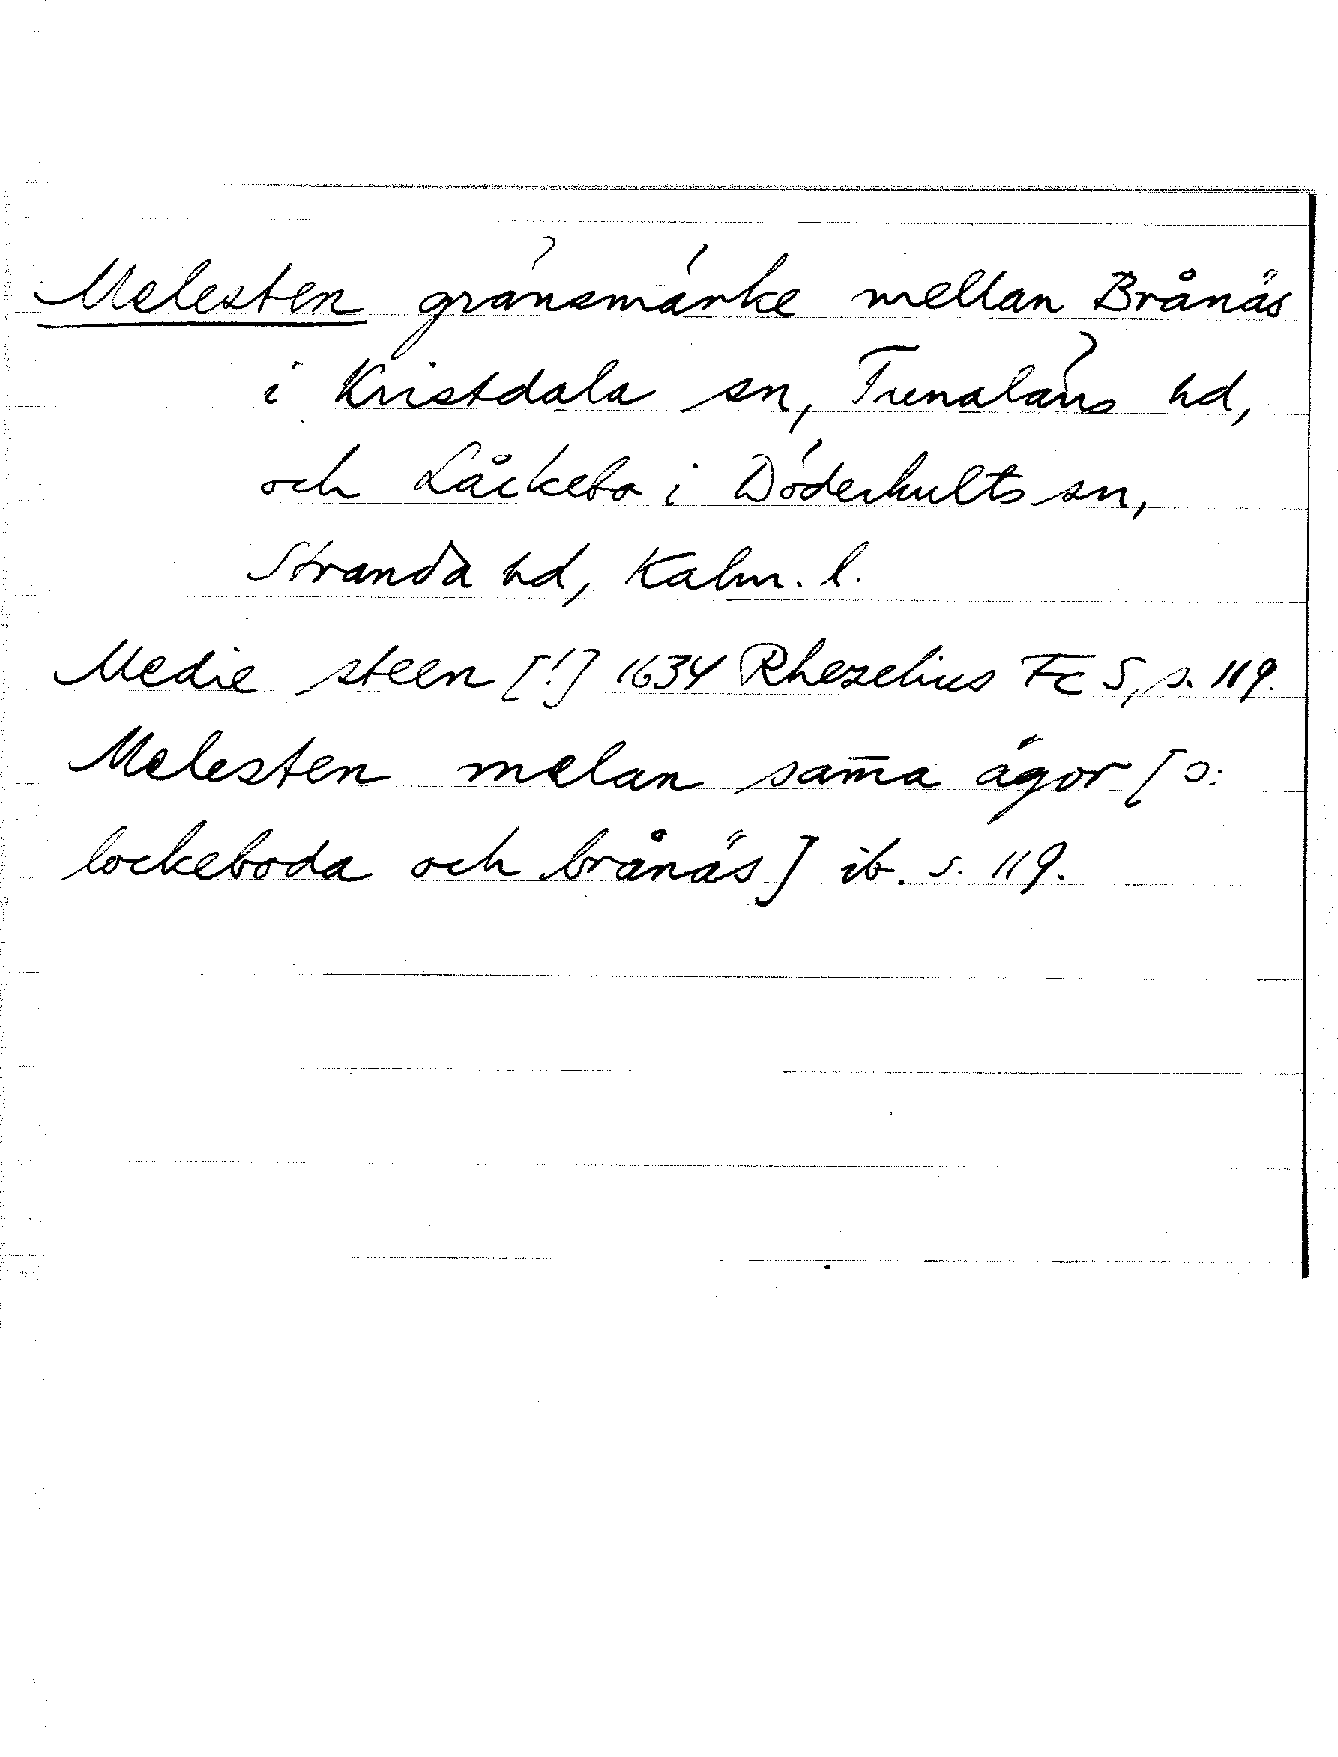 Melesten gränsmärke mellan Brånäs
i Kristdala sn, Tunaläns hd,
och Låckebo i Döderhults sn,
Stranda hd, Kalm. l.
Medie steen [!] 1634 Rhezelius Fc 5, s. 119.
Melesten melan sam̅a ägor [ɔ:
lockeboda och brånäs] ib. s. 119.